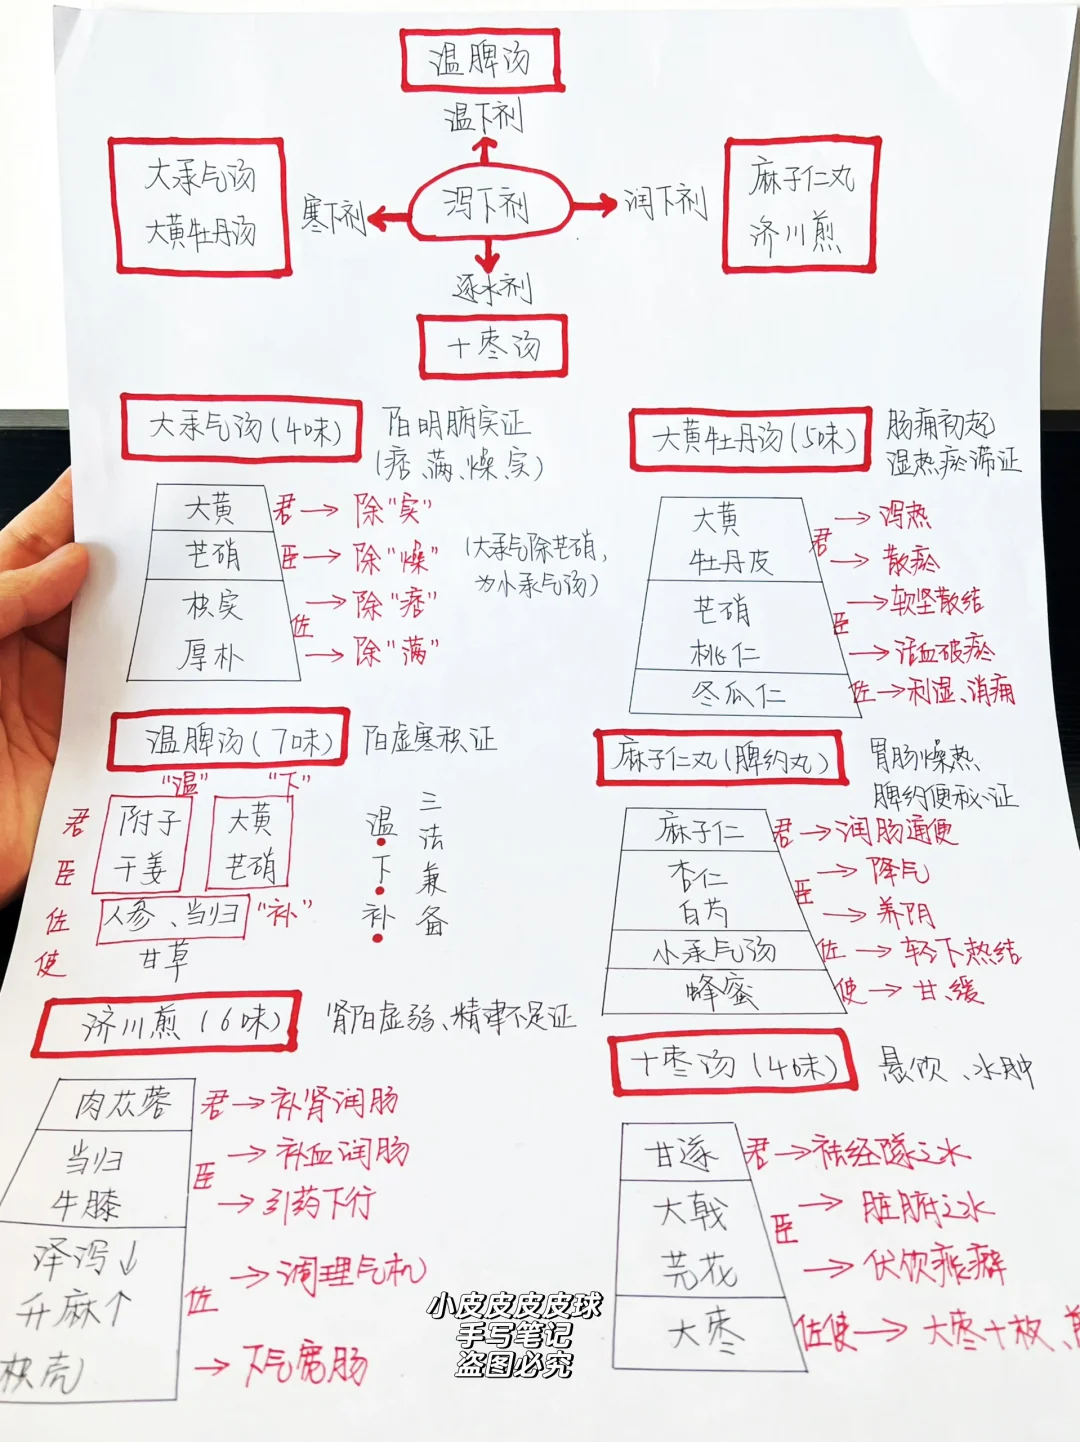 温脾汤
温下剂
大承气汤
大黄牡丹汤
寒下剂
泻下剂
润下剂
麻子仁丸
济川煎
逐水剂
十枣汤
大承气汤(4味)
阳明腑实证
(痞、满、燥、实)
大黄
君→除"实"
芒硝
臣→除"燥"
枳实
→除"痞"
佐
厚朴
→除"满"
(大承气除芒硝,
为小承气汤)
大黄牡丹汤(5味)
肠痈初起
湿热瘀滞证
大黄
→泻热
君
牡丹皮
→散瘀
芒硝
→软坚散结
臣
桃仁
→活血破瘀
冬瓜仁
佐→利湿、消痈
温脾汤(7味)
阳虚寒积证
"温"
"下"
君
附子
大黄
臣
干姜
芒硝
佐
人参、当归
"补"
使
甘草
温
下
补
三法兼备
麻子仁丸(脾约丸)
胃肠燥热
脾约便秘证
麻子仁
君→润肠通便
杏仁
→降气
臣
白芍
→养阴
小承气汤
佐→轻下热结
蜂蜜
使→甘、缓
济川煎(6味)
肾阳虚弱、精津不足证
肉苁蓉
君→补肾润肠
当归
→补血润肠
臣
牛膝
→引药下行
泽泻↓
→调理气机
升麻↑
佐
枳壳
→下气宽肠
十枣汤(4味)
悬饮、水肿
甘遂
君→祛经隧之水
大戟
→脏腑之水
臣
芫花
→伏饮痰癖
大枣
佐使→大枣十枚、
小皮皮皮皮球
手写笔记
盗图必究